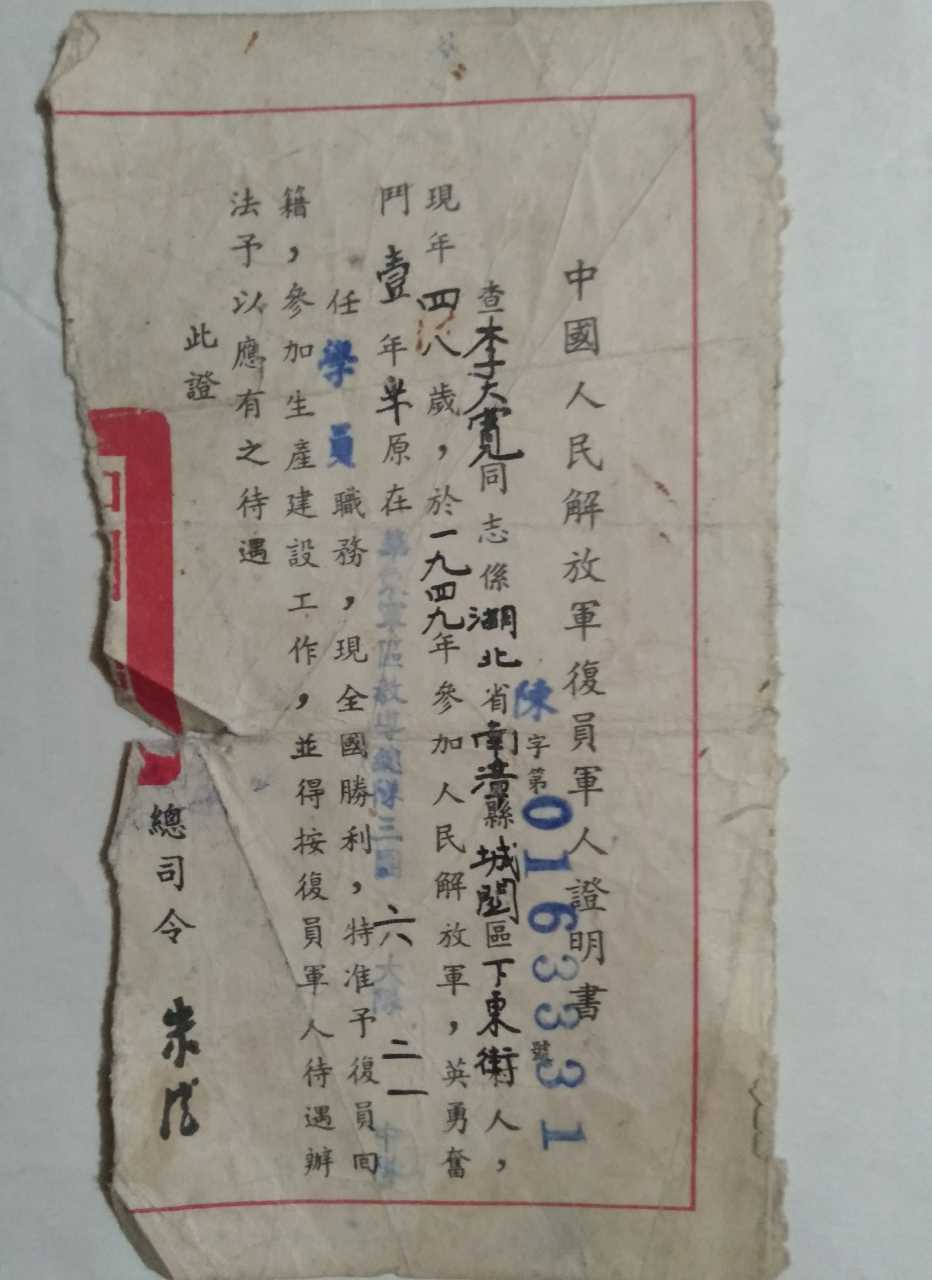 中國人民解放軍復員軍人證明書
陳字第0163331號
查李大寬同志係湖北省南漳縣城關區下東街村人，
現年四八歲，於一九四九年參加人民解放軍，英勇奮
鬥壹年半原在華東軍區教導總隊三團六大隊二一中隊
任學員職務，現全國勝利，特准予復員回
籍，參加生產建設工作，並得按復員軍人待遇辦
法予以應有之待遇
此證
總司令 朱德